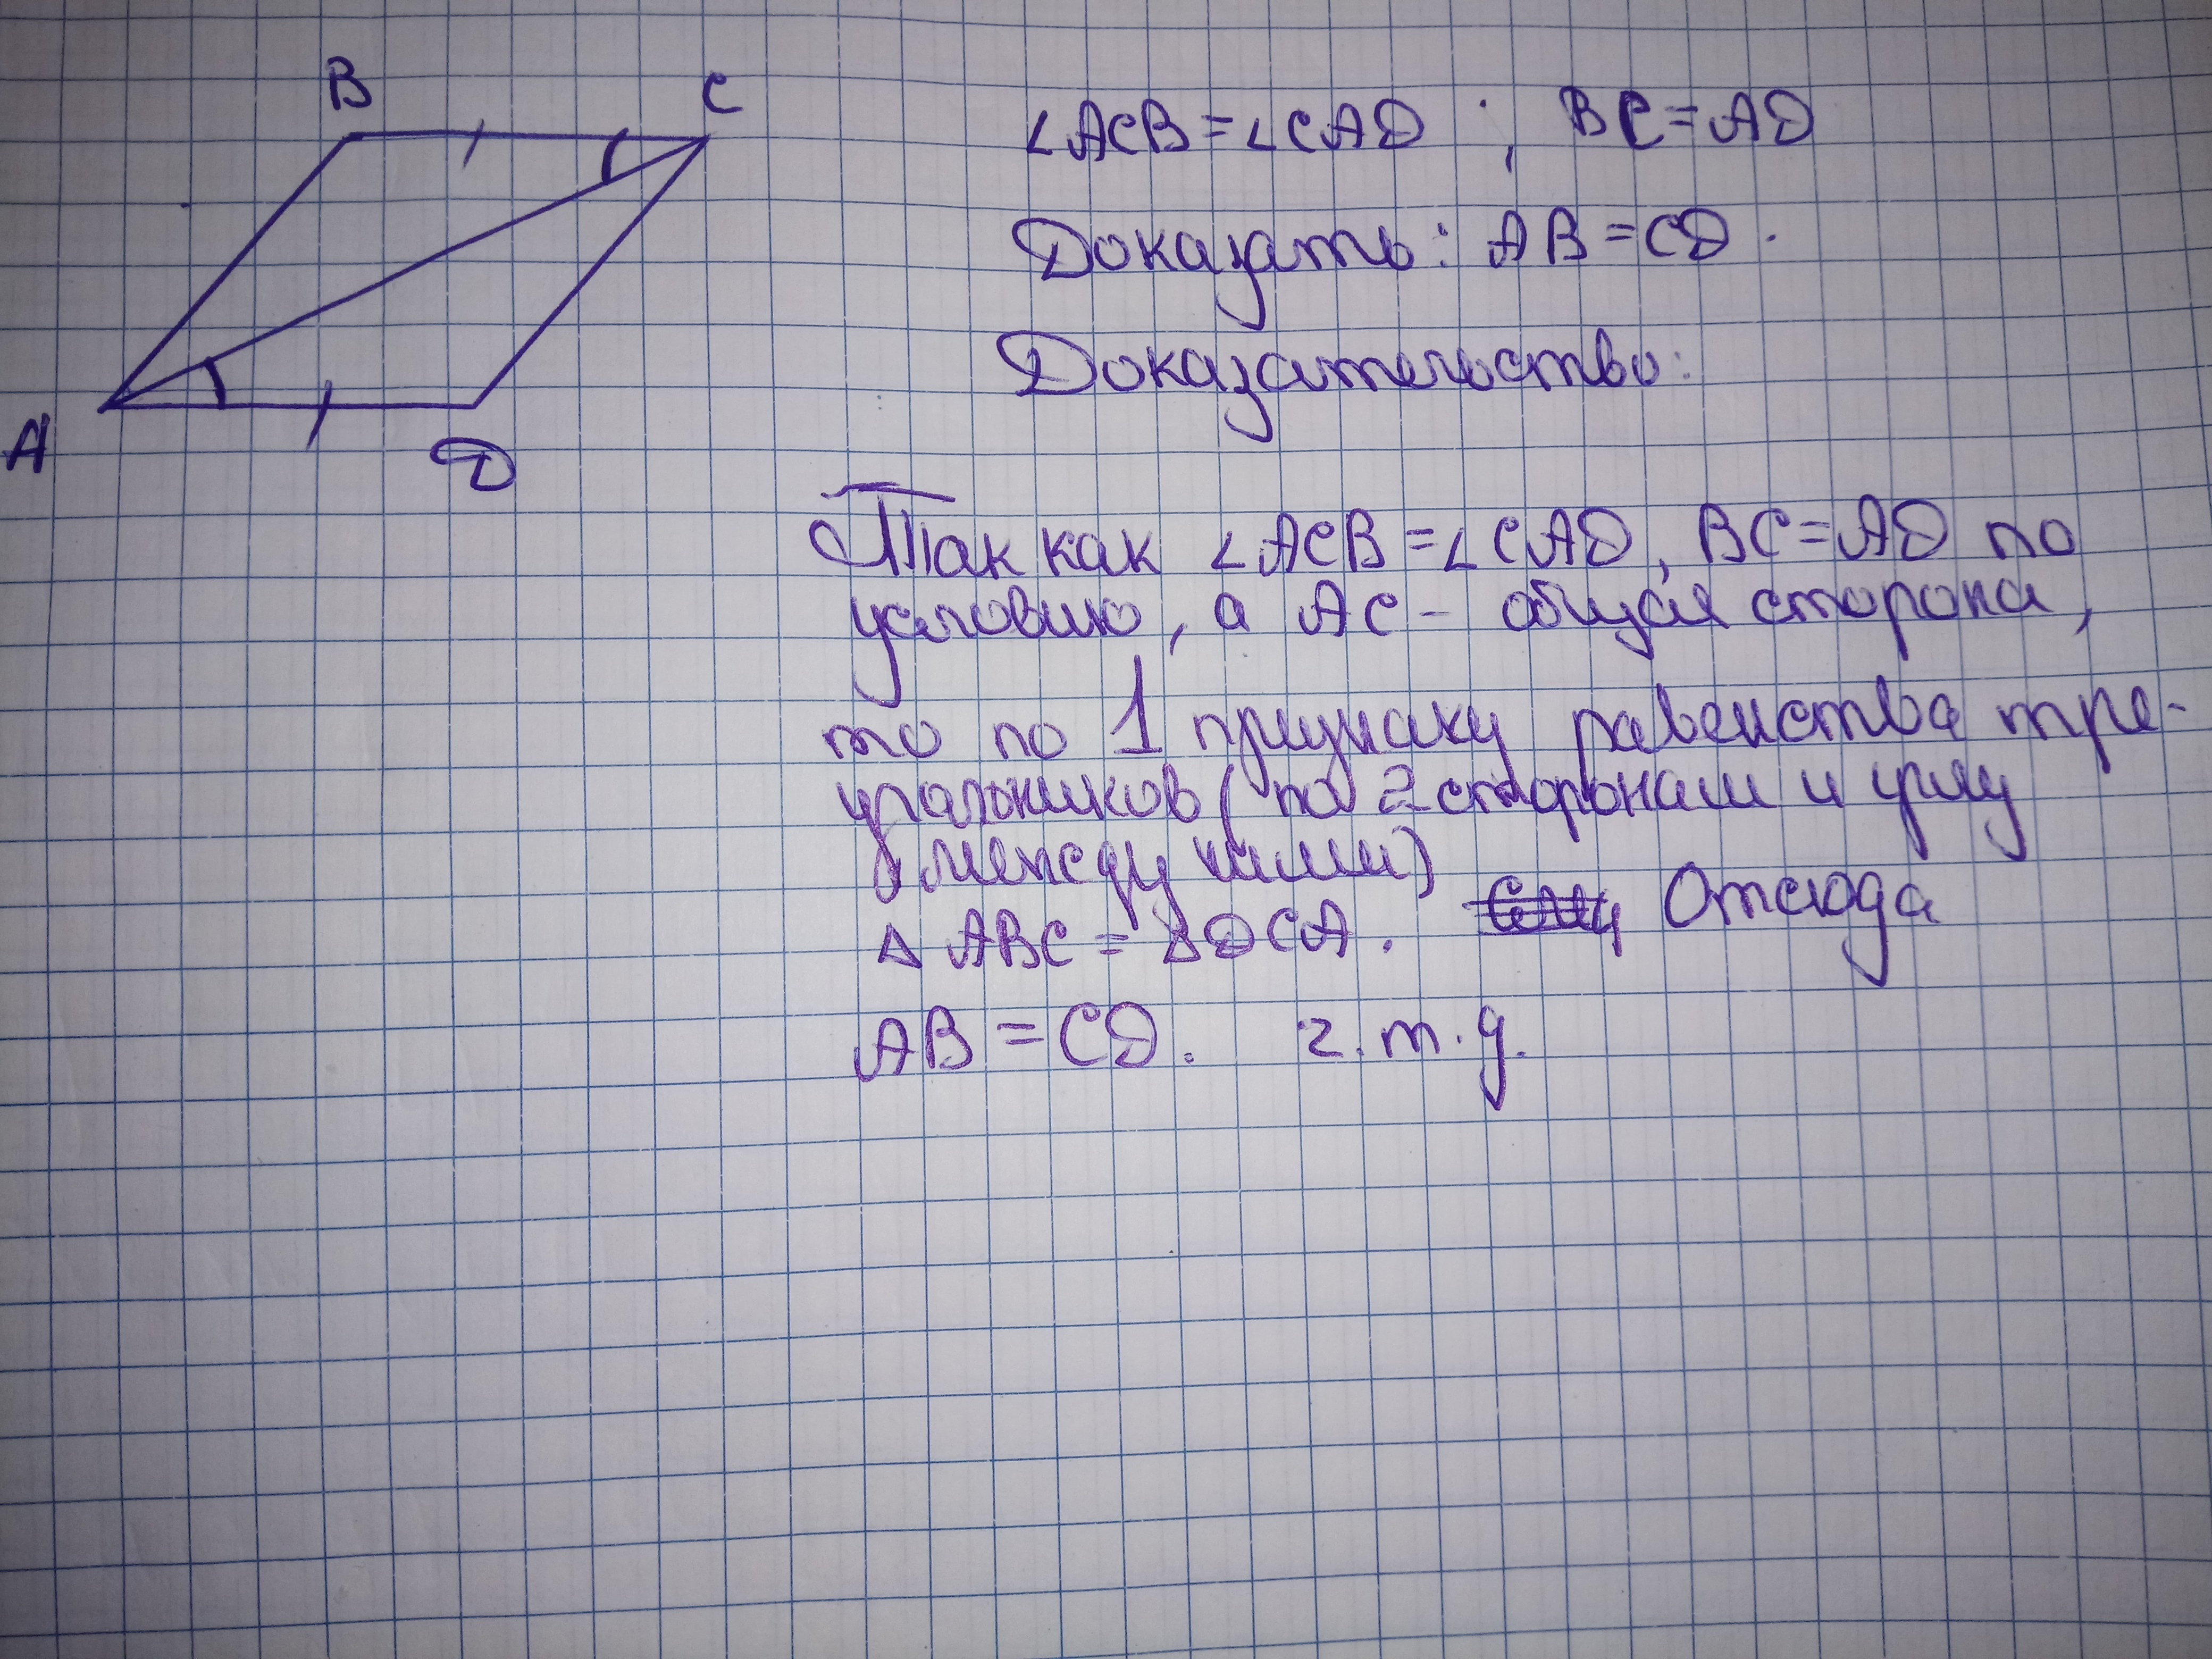 B C
A D
∠ACB = ∠CAD ; BC = AD
Доказать: AB = CD.
Доказательство:
Так как ∠ACB = ∠CAD, BC = AD по
условию, а AC - общая сторона,
то по 1 признаку равенства тре-
угольников (по 2 сторонам и углу
между ними)
△ ABC = △DCA. Отсюда
AB = CD. ч.т.д.